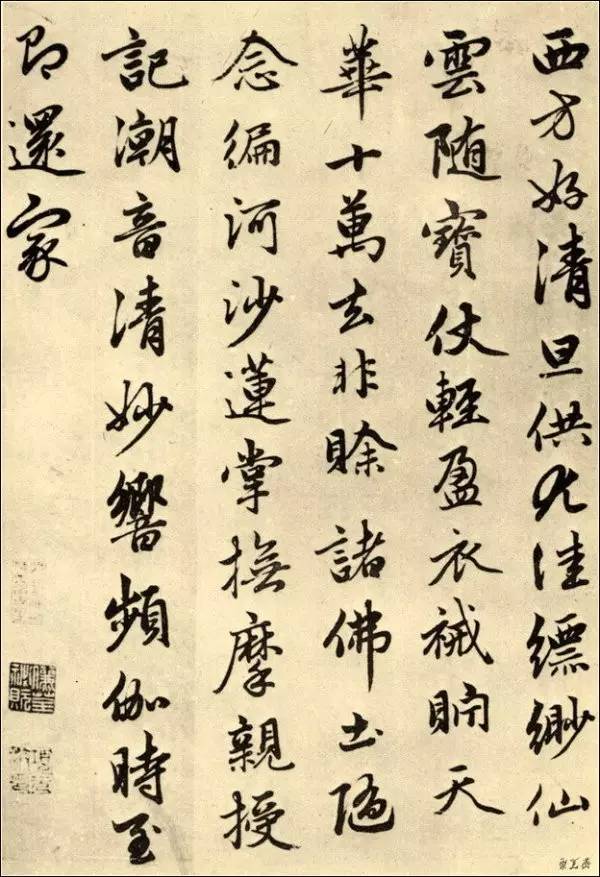 西方好清旦供尤佳縹緲仙
雲随寶仗輕盈衣祴貯天
華十萬去非賖諸佛土隨
念徧河沙蓮掌撫摩親授
記潮音清妙響頻伽時至
即還家